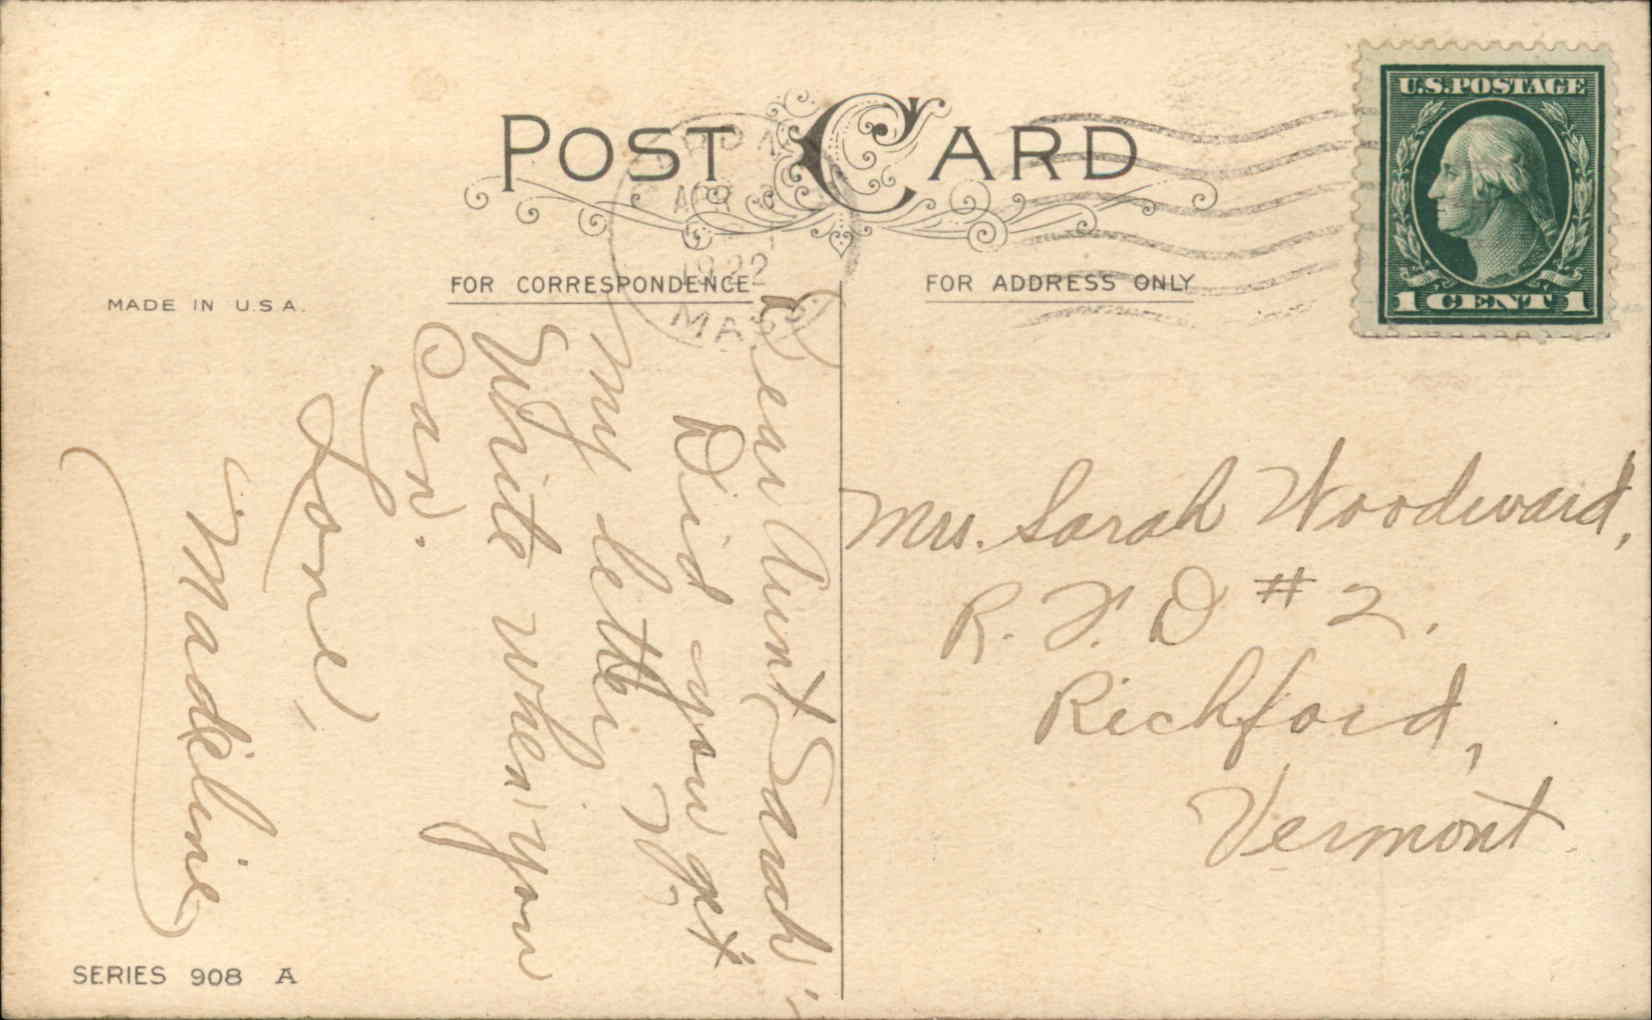 POST CARD
APR
1922
MASS
FOR CORRESPONDENCE
FOR ADDRESS ONLY
MADE IN U.S.A.
U.S. POSTAGE
1 CENT 1
Dear Aunt Sarah;
Did you get
my letter?
Write when you
can.
Love,
Madeline
Mrs. Sarah Woodward,
R. F. D #2.
Richford,
Vermont.
SERIES 908 A